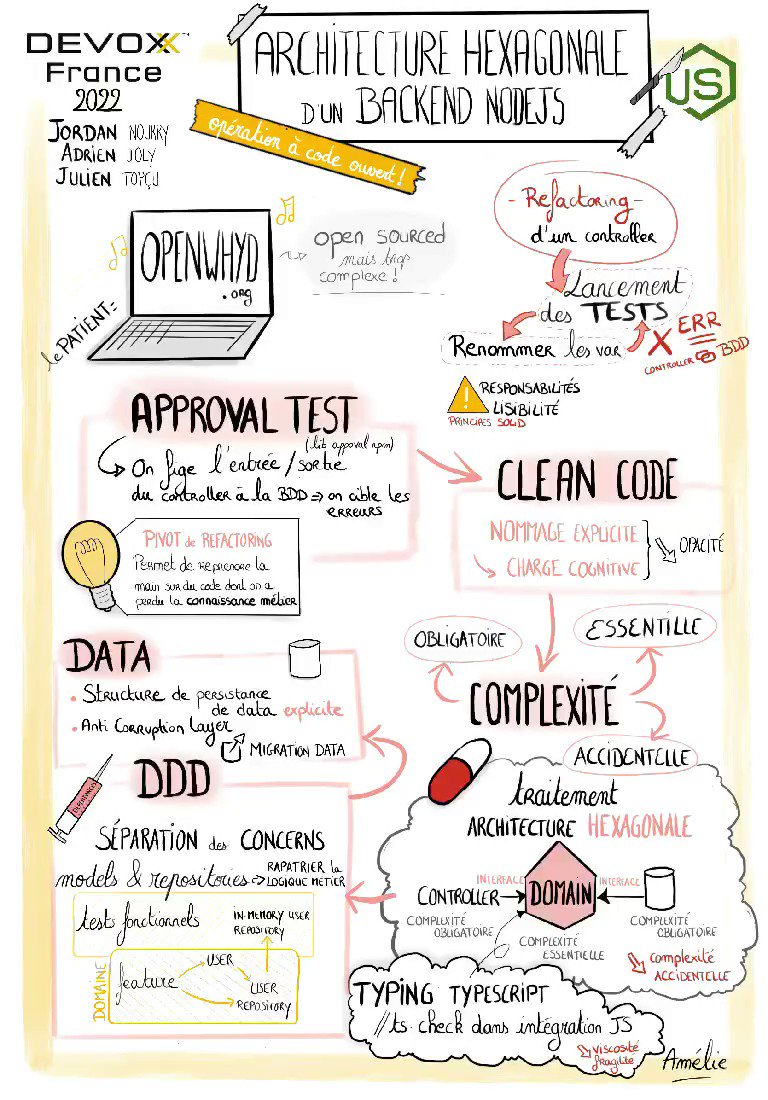 DEVOXX™
France
2022
JORDAN NOJKKY
ADRIEN JOLY
JULIEN TOPÇU
ARCHITECTURE HEXAGONALE
D'UN BACKEND NODEJS
JS
opération à code ouvert!
le PATIENT:
OPENWHYD
.org
open sourced
mais trop
complexe!
- Refactoring -
d'un controller
Lancement
des TESTS
Renommer les var
X ERR
CONTROLLER BDD
! RESPONSABILITÉS
LISIBILITÉ
PRINCIPES SOLID
APPROVAL TEST
(lib approval npm)
On fige l'entrée/sortie
du controller à la BDD => on cible les
erreurs
PIVOT de REFACTORING
Permet de reprendre la
main sur du code dont on a
perdu la connaissance métier
CLEAN CODE
NOMMAGE EXPLICITE
CHARGE COGNITIVE
OPACITÉ
COMPLEXITÉ
OBLIGATOIRE
ESSENTILLE
ACCIDENTELLE
traitement
ARCHITECTURE HEXAGONALE
CONTROLLER
INTERFACE
DOMAIN
INTERFACE
COMPLEXITÉ
OBLIGATOIRE
COMPLEXITÉ
ESSENTIELLE
COMPLEXITÉ
OBLIGATOIRE
complexité
ACCIDENTELLE
TYPING TYPESCRIPT
//ts-check dans intégration JS
viscosité
fragilité
DATA
• Structure de persistance
de data explicite
• Anti Corruption Layer
MIGRATION DATA
DDD
SÉPARATION des CONCERNS
models & repositories => RAPATRIER la
LOGIQUE METIER
tests fonctionnels
IN-MEMORY USER
REPOSITORY
DOMAINE
feature
USER
USER
REPOSITORY
Amélie